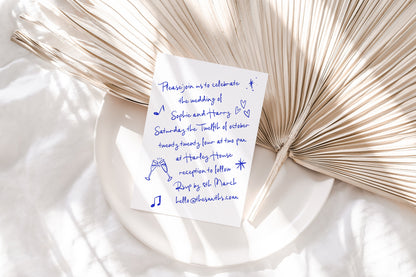 Please join us to celebrate
the wedding of
Sophie and Harry
Saturday the Twelfth of october
twenty twenty four at two pm
at Harley House
reception to follow
Rsvp by 8th March
hello@thesmiths.com